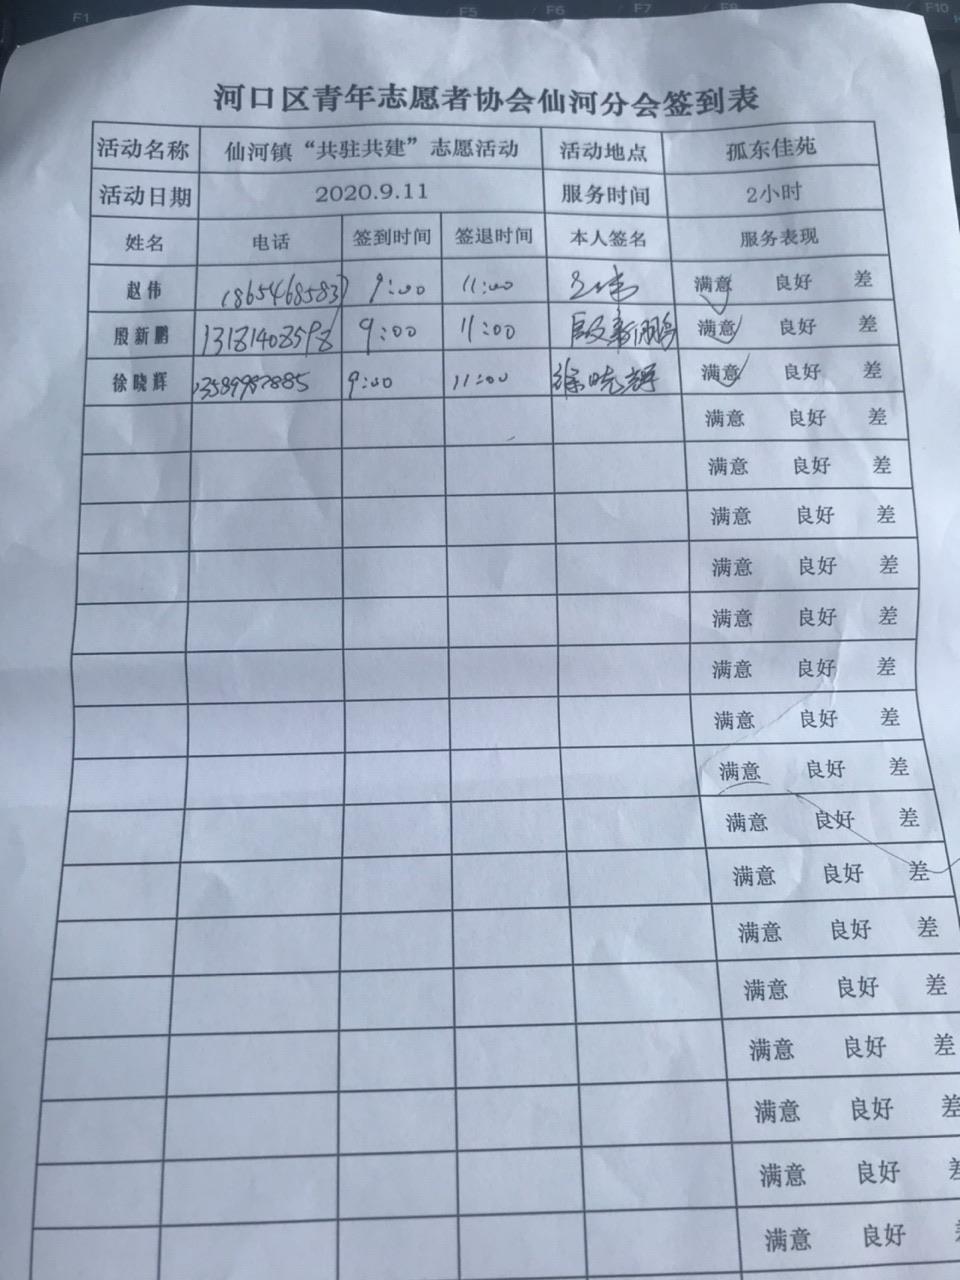 F1 F5 F6 F7 F8 F10
河口区青年志愿者协会仙河分会签到表
活动名称 仙河镇“共驻共建”志愿活动 活动地点 孤东佳苑
活动日期 2020.9.11 服务时间 2小时
姓名 电话 签到时间 签退时间 本人签名 服务表现
赵伟 18654685837 9:00 11:00 满意 良好 差
殷新鹏 13181408598 9:00 11:00 殷新鹏 满意 良好 差
徐晓辉 13589987885 9:00 11:00 徐晓辉 满意 良好 差
满意 良好 差
满意 良好 差
满意 良好 差
满意 良好 差
满意 良好 差
满意 良好 差
满意 良好 差
满意 良好 差
满意 良好 差
满意 良好 差
满意 良好 差
满意 良好 差
满意 良好 差
满意 良好 差
满意 良好 差
满意 良好 差